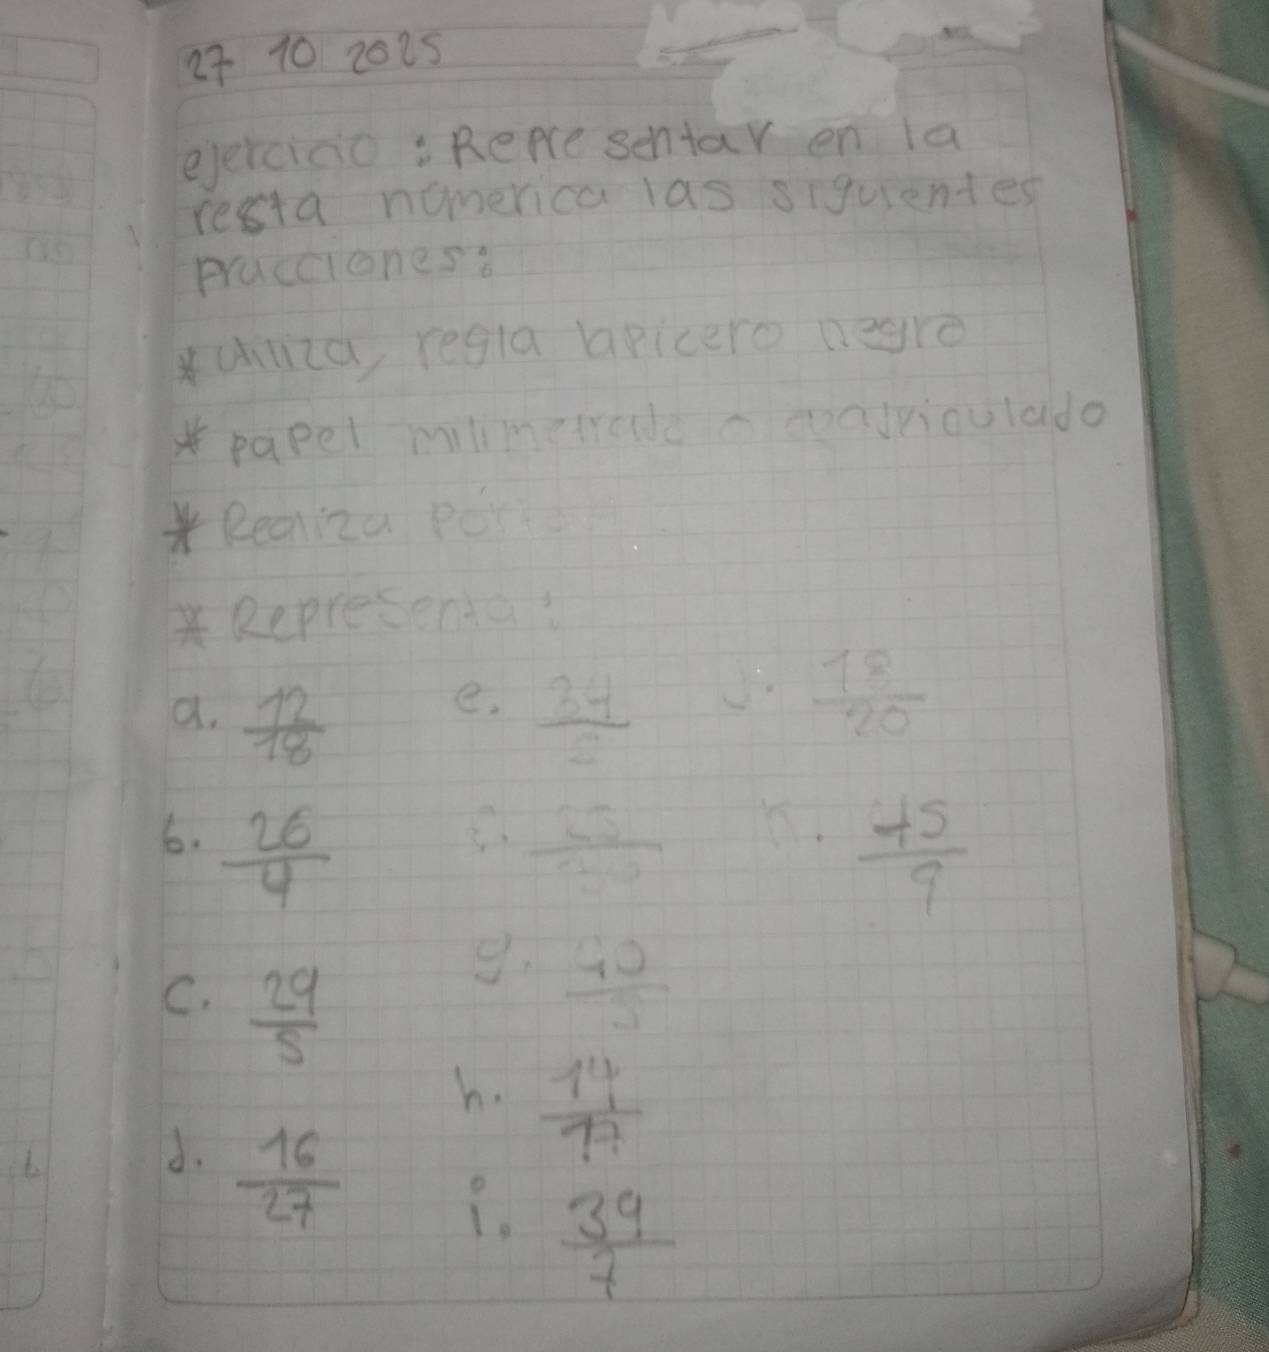 27 10 2025
ejercicio : Representar en la
resta númerica las siguientes
pracciones:
* Utiliza, regla lapicero negro
* papel milimetrado o cuadriculado
* Realiza
* Representa:
a. 12/18 e. 34/ j. 18/20
b. 26/4 k. 45/9
c. 29/5 g. 40/
h. 14/17
d. 16/27
i. 39/7